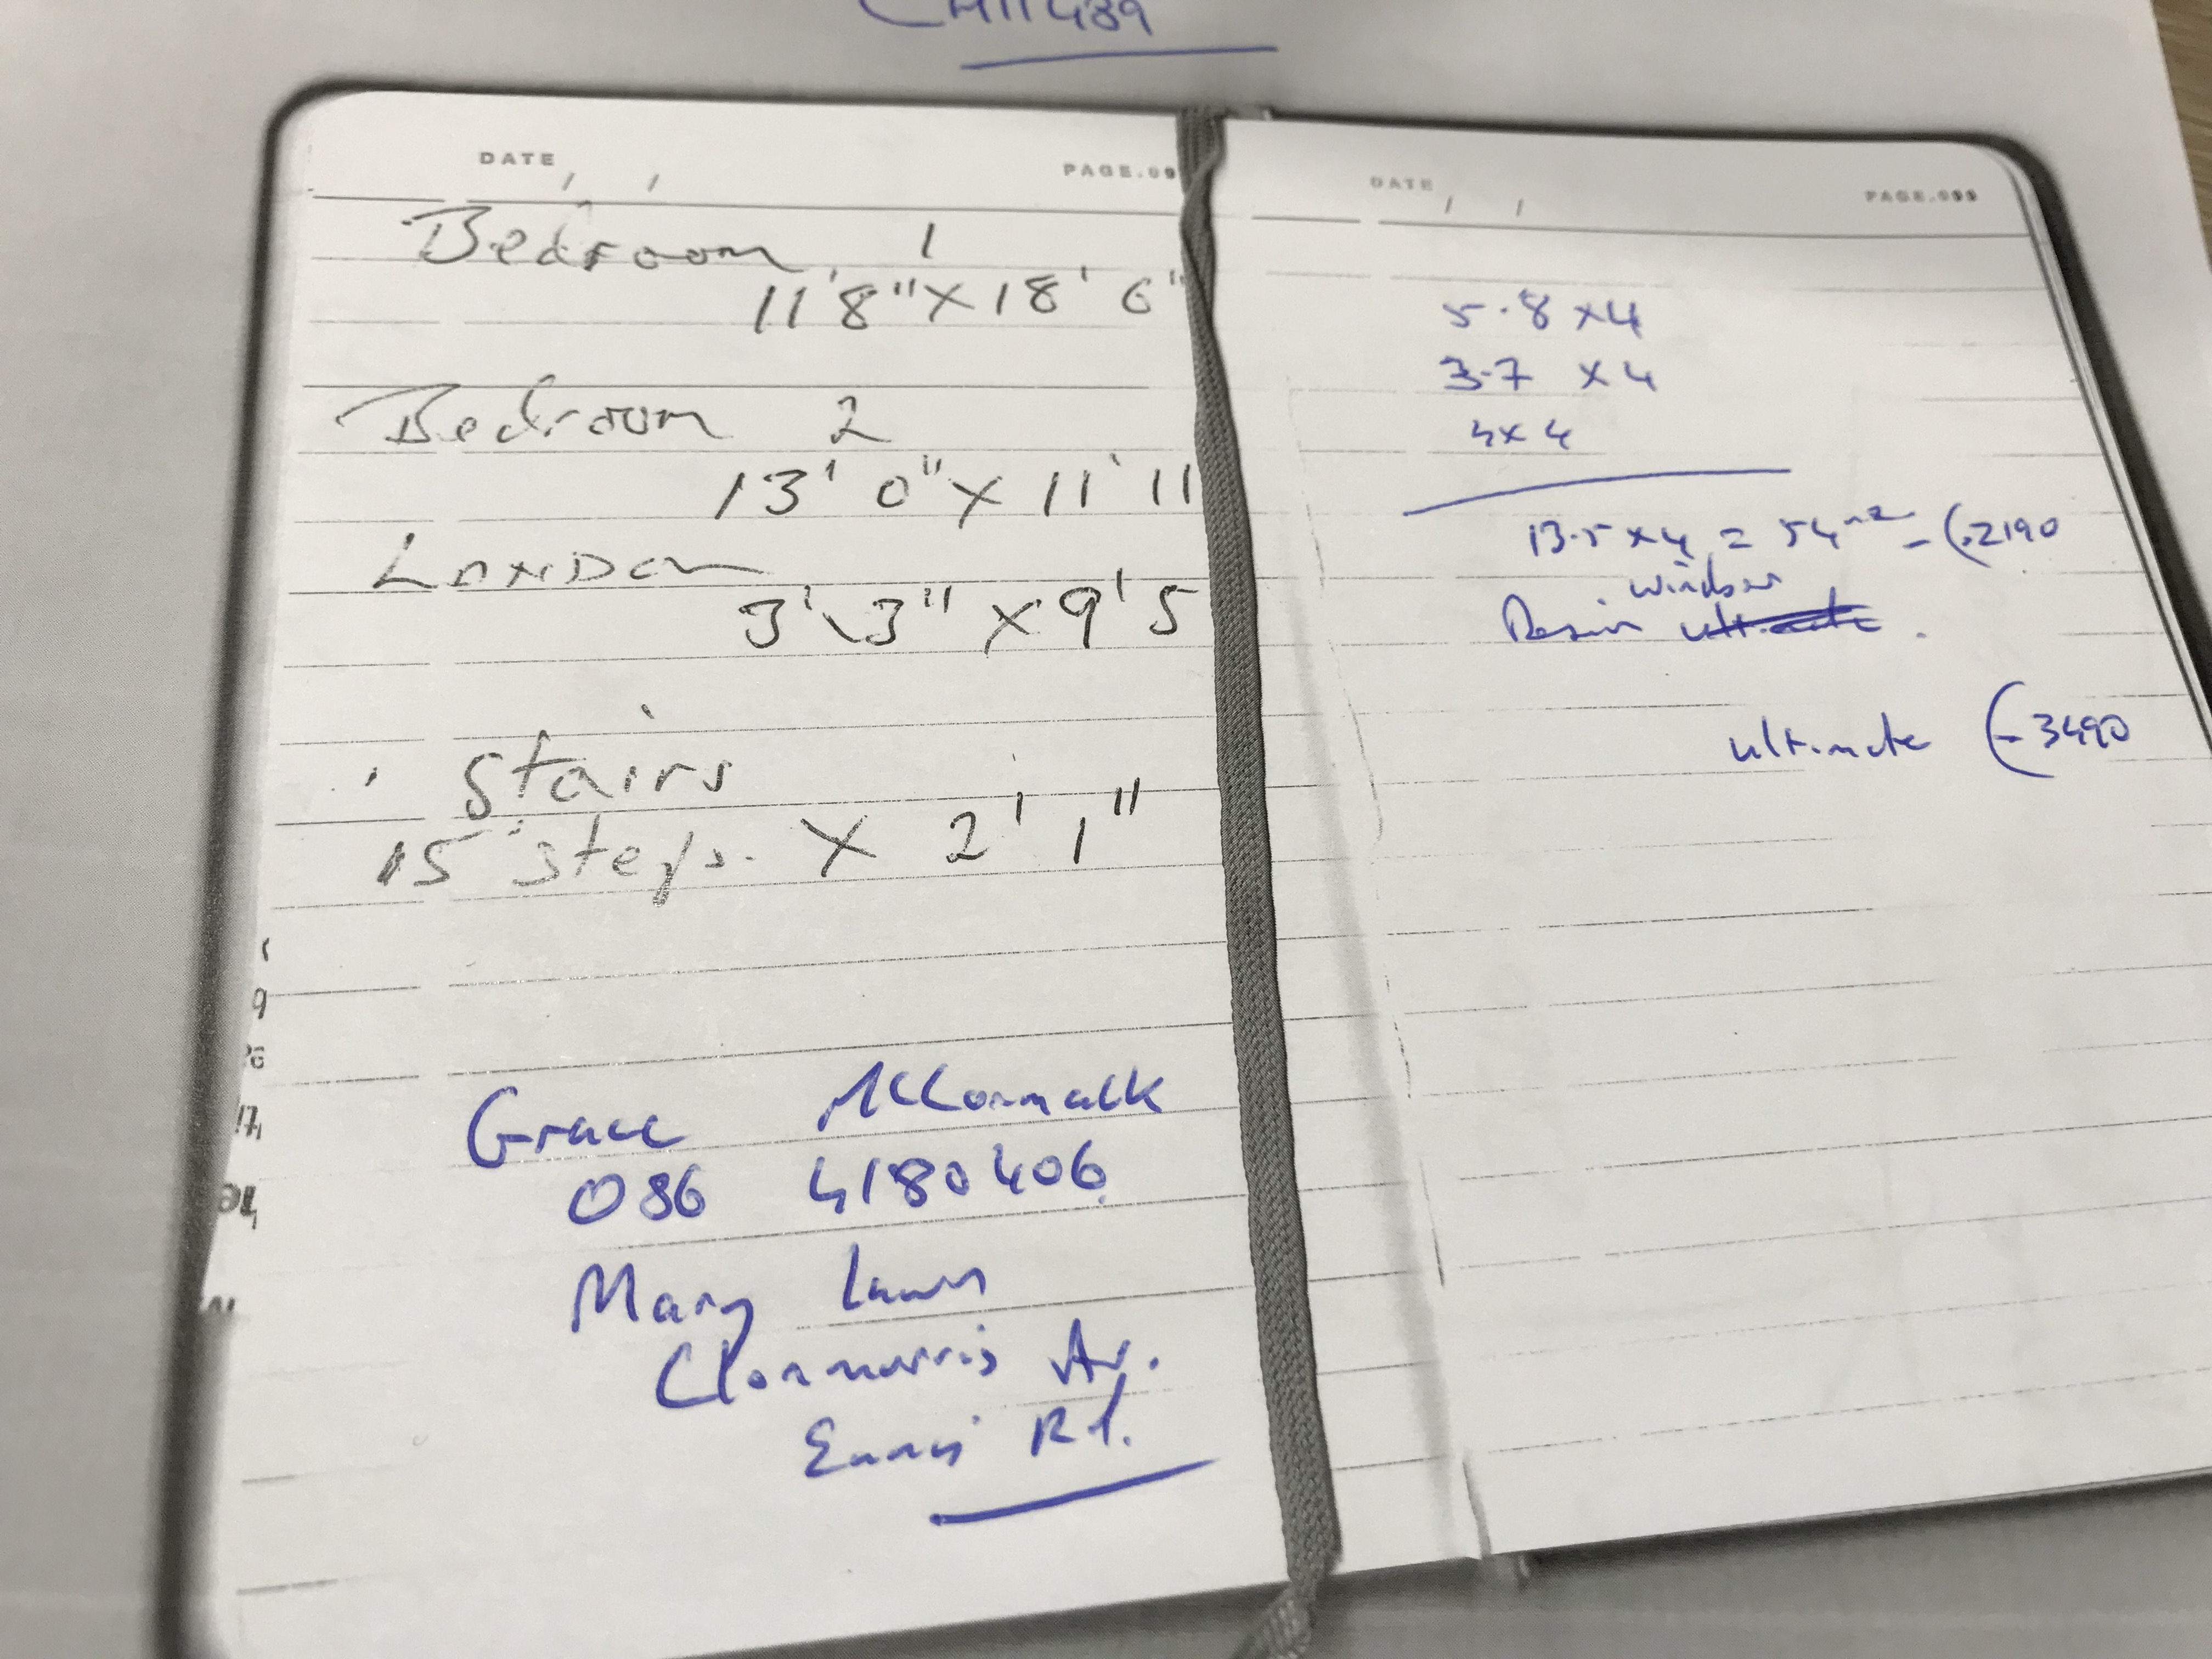 489
DATE / /
PAGE.09
Bedroom 1
11'8" X 18' 6"
Bedroom 2
13' 0" X 11' 11
3' 3" X 9' 5
Stairs
15 steps. X 2' 1"
Grace McCormack
086 4180406
Mary
Clonmurris Av.
Ennis Rd.
DATE / /
PAGE.099
5.8 x4
3.7 x 4
4x 4
13.5 x 4 = 54 m2 - 2190
windsor
Resin ultimate
ultimate 3490